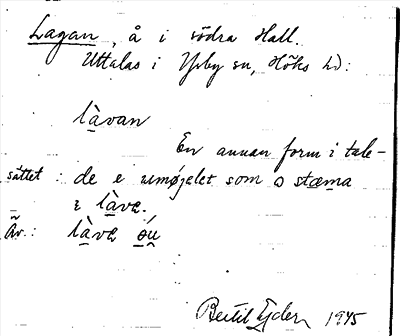 Lagan, å i södra Hall.
Uttalas i Ysby sn, Höks hd:
làvan
En annan form i tale-
sättet: de e umøjelet som o stæma
i làva.
Äv.: làva óu
Bertil Ejder 1945